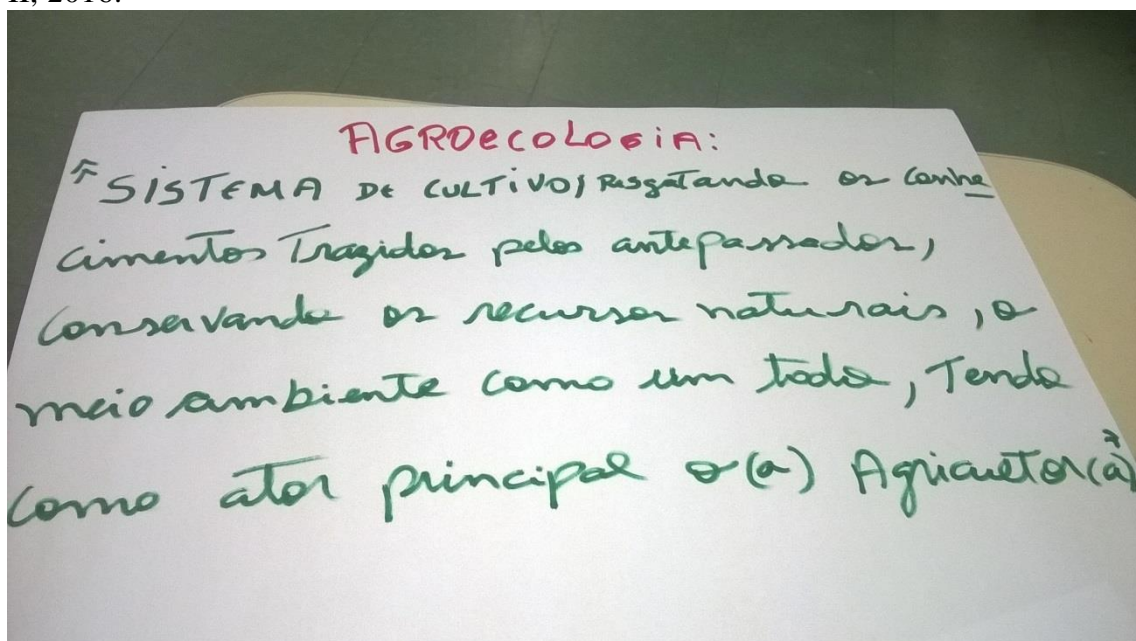 AGROecoLOGiA:
"SISTEMA DE CULTIVO, Resgatando os conhe
cimentos Trazidos pelos antepassados,
conservando os recursos naturais, o
meio ambiente como um todo, Tendo
como ator principal o(a) Agricultor(a)"